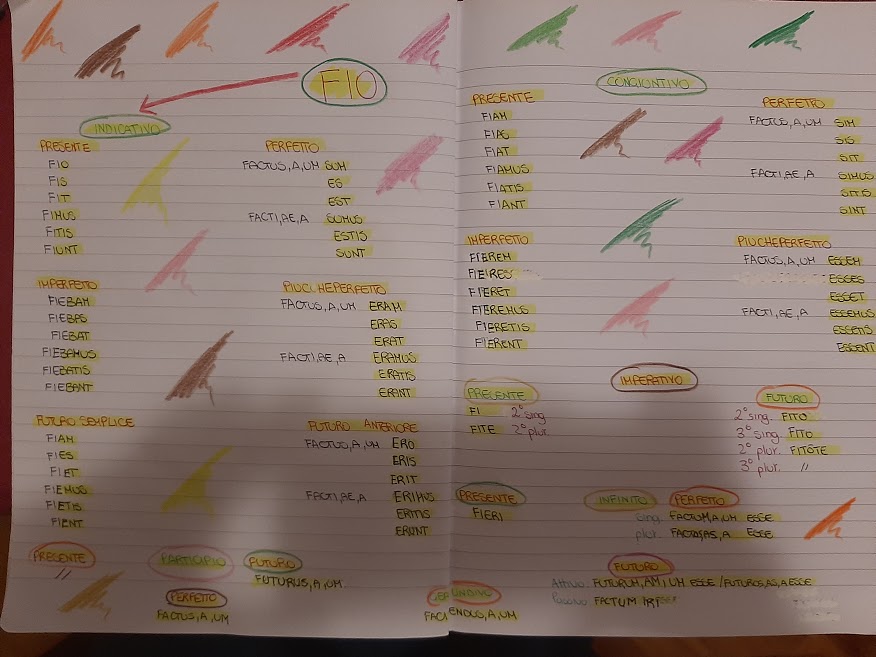 FIO
INDICATIVO
PRESENTE
FIO
FIS
FIT
FIMUS
FITIS
FIUNT
PERFETTO
FACTUS, A, UM SUM
ES
EST
FACTI, AE, A SUMUS
ESTIS
SUNT
IMPERFETTO
FIEBAM
FIEBAS
FIEBAT
FIEBAMUS
FIEBATIS
FIEBANT
PIUCHEPERFETTO
FACTUS, A, UM ERAM
ERAS
ERAT
FACTI, AE, A ERAMUS
ERATIS
ERANT
FUTURO SEMPLICE
FIAM
FIES
FIET
FIEMUS
FIETIS
FIENT
FUTURO ANTERIORE
FACTUS, A, UM ERO
ERIS
ERIT
FACTI, AE, A ERIMUS
ERITIS
ERUNT
PARTICIPIO
PRESENTE
//
PERFETTO
FACTUS, A, UM
FUTURO
FUTURUS, A, UM
CONGIUNTIVO
PRESENTE
FIAM
FIAS
FIAT
FIAMUS
FIATIS
FIANT
PERFETTO
FACTUS, A, UM SIM
SIS
SIT
FACTI, AE, A SIMUS
SITIS
SINT
IMPERFETTO
FIEREM
FIERES
FIERET
FIEREMUS
FIERETIS
FIERENT
PIUCHEPERFETTO
FACTUS, A, UM ESSEM
ESSES
ESSET
FACTI, AE, A ESSEMUS
ESSETIS
ESSENT
IMPERATIVO
PRESENTE
FI 2° sing
FITE 2° plur.
FUTURO
2° sing. FITO
3° sing. FITO
2° plur. FITOTE
3° plur. //
INFINITO
PRESENTE
FIERI
PERFETTO
sing. FACTUM, A, UM ESSE
plur. FACTOS, AS, A ESSE
FUTURO
Attivo: FUTURUM, AM, UM ESSE / FUTUROS, AS, A ESSE
FACTUM IRI
GERUNDIVO
FACIENDUS, A, UM